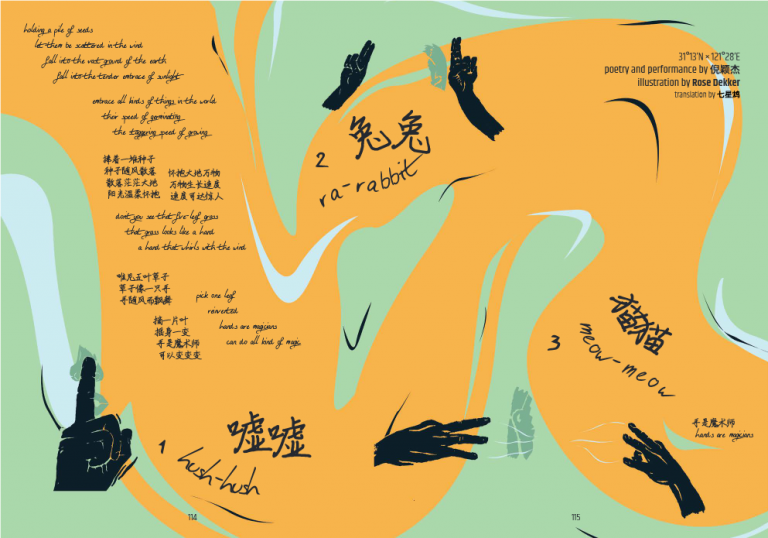 holding a pile of seeds
let them be scattered in the wind
fall into the vast ground of the earth
fall into the tender embrace of sunlight
embrace all kinds of things in the world
ther speed of germinating
the staggering speed of growing
捧着一堆种子
种子随风散落
散落茫茫大地
阳光温柔怀抱
怀抱大地万物
万物生长速度
速度可达惊人
don't you see that five-leaf grass
that grass looks like a hand
a hand that whirls with the wind
唯见五叶草子
草子像一只手
手随风而飘舞
pick one leaf
hands are magicians
can do all kind of magic
摘一片叶
摇身一变
手是魔术师
可以变变变
1
嘘嘘
hush-hush
114
2
兔兔
ra-rabbit
31°13'N × 121°28'E
poetry and performance by 倪颖杰
illustration by Rose Dekker
translation by 七星鸫
3
猫猫
meow-meow
手是魔术师
hands are magicians
115